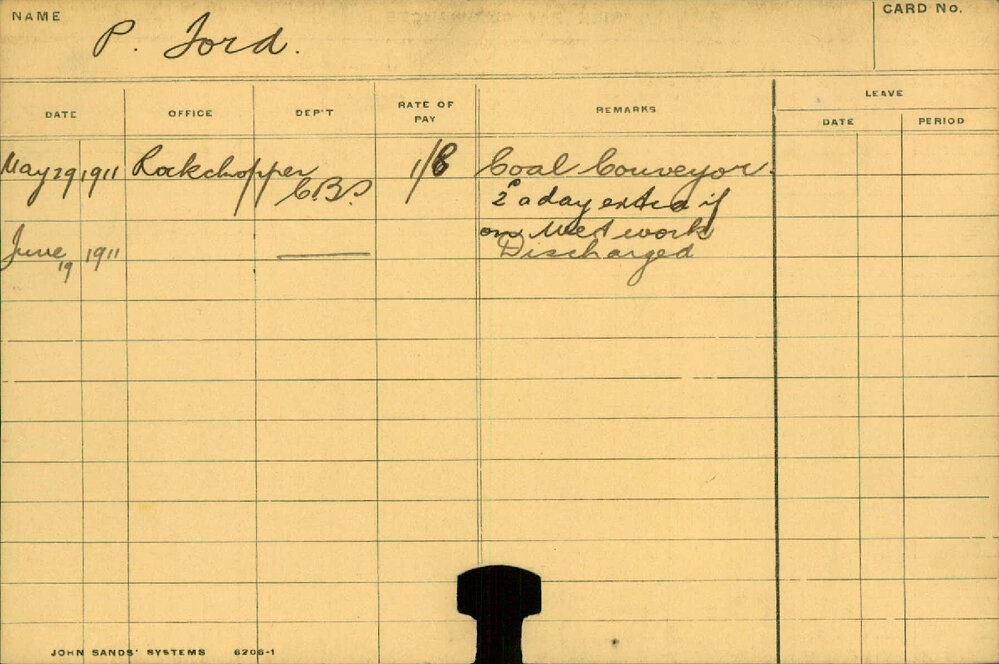 NAME P. Ford. CARD No.
DATE OFFICE DEP'T RATE OF PAY REMARKS LEAVE
DATE PERIOD
May 29 1911 Rockchopper C.B.S. 1/8 Coal Conveyor.
2d a day extra if
on wet work
June 19 1911 Discharged
JOHN SANDS' SYSTEMS 6206-1